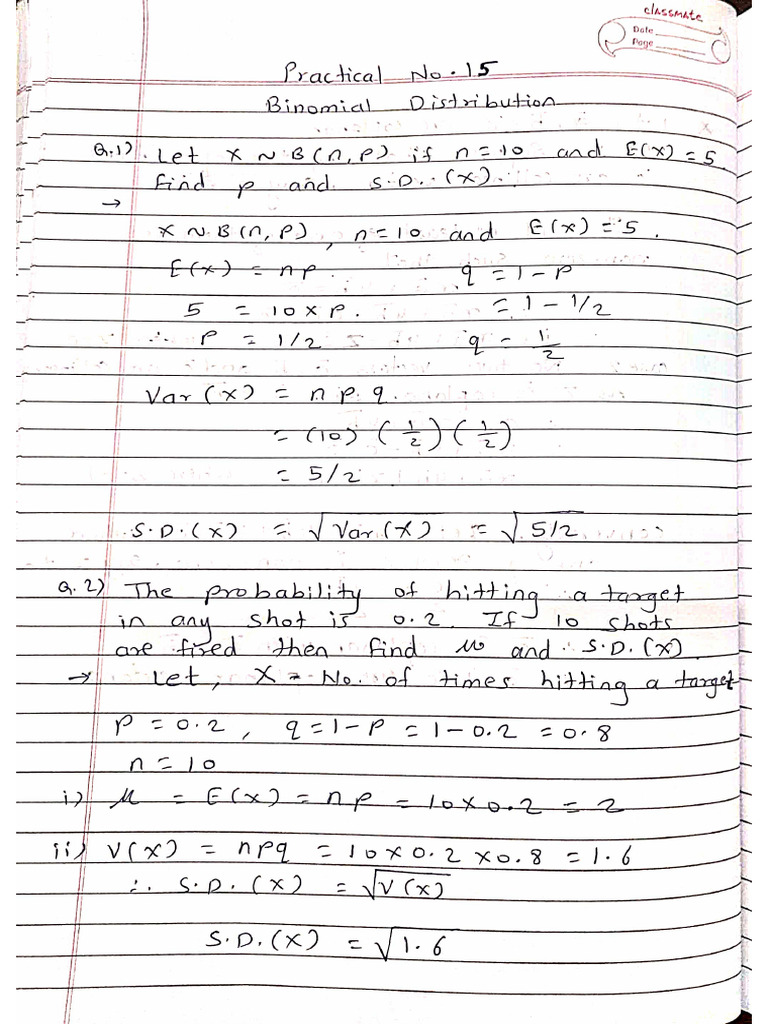 classmate
Date
Page
Practical No.15
Binomial Distribution
Q.1) Let X ~ B(n, p) if n = 10 and E(x) = 5
find p and S.D. (x).
→
X ~ B(n, p), n = 10 and E(x) = 5.
E(x) = np. q = 1 - p
5 = 10 × p. = 1 - 1/2
∴ P = 1/2 q = 1/2
Var (x) = n p. q.
= (10) (1/2) (1/2)
= 5/2
S.D. (x) = √Var (x) = √5/2
Q. 2) The probability of hitting a target
in any shot is 0.2. If 10 shots
are fired then find μ and S.D. (x)
→ Let, X = No. of times hitting a target
P = 0.2, q = 1 - P = 1 - 0.2 = 0.8
n = 10
i) μ = E(x) = np = 10 × 0.2 = 2
ii) V(x) = npq = 10 × 0.2 × 0.8 = 1.6
∴ S.D. (x) = √V(x)
S.D. (x) = √1.6